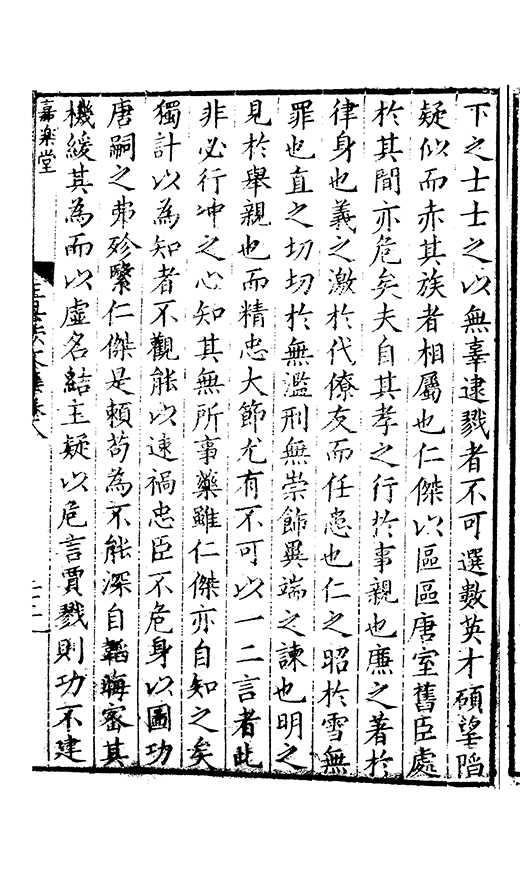 下之士士之以無辜逮戮者不可選數英才碩望䧟
疑似而赤其族者相屬也仁傑以區區唐室舊臣處
於其間亦危矣夫自其孝之行於事親也廉之著於
律身也義之激於代僚友而任患也仁之昭於雪無
罪也直之切切於無濫刑無崇飾異端之諫也明之
見於舉親也而精忠大節尤有不可以一二言者此
非必行冲之心知其無所事藥雖仁傑亦自知之矣
獨計以為知者不觀能以速禍忠臣不危身以圖功
唐嗣之弗殄繄仁傑是賴苟為不能深自韜晦密其
機緩其為而以虛名結主疑以危言賈戮則功不建
嘉樂堂